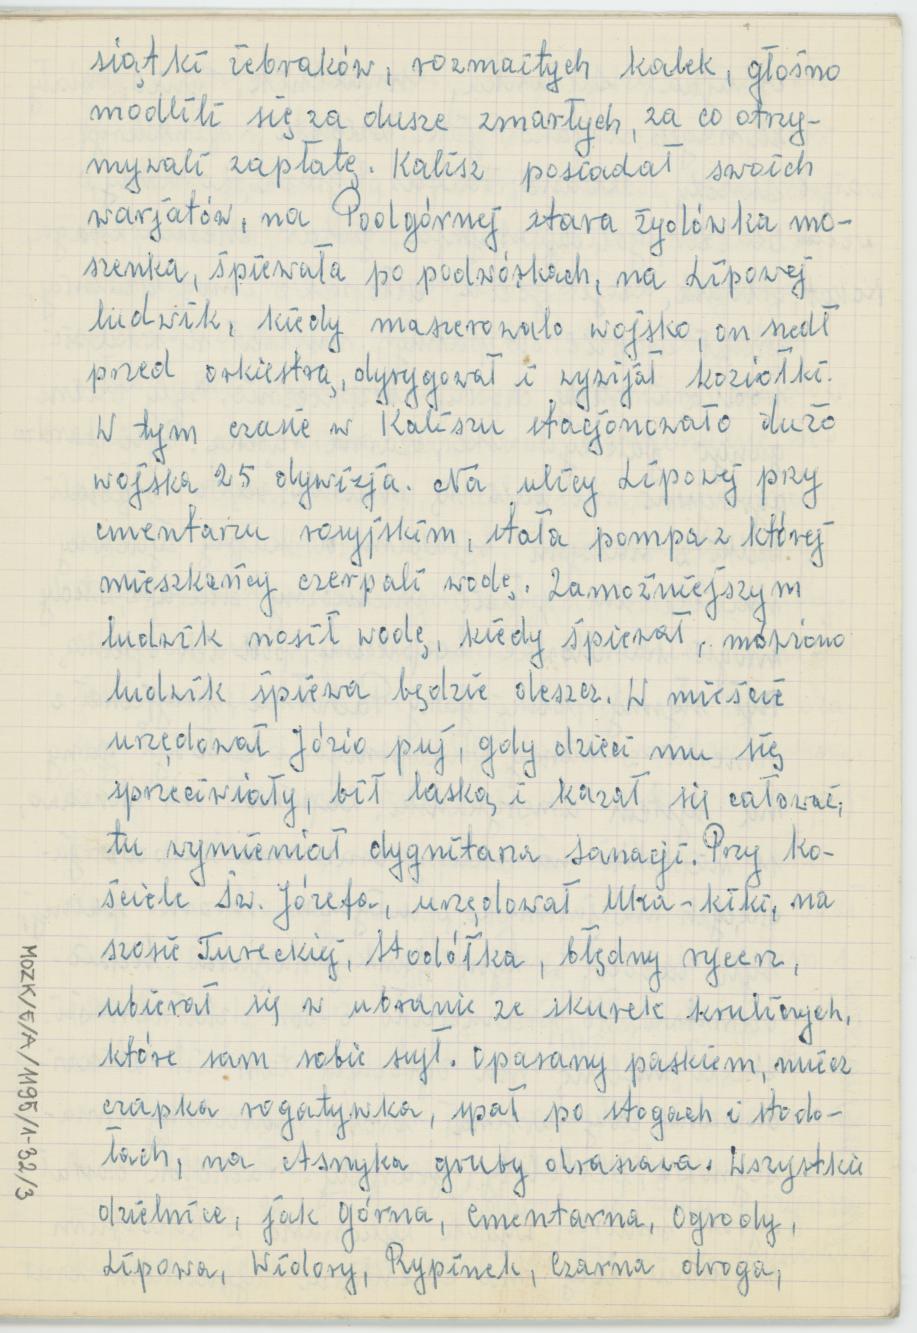 siątki żebraków, rozmaitych kalek, głośno
modlili się za dusze zmarłych, za co otrzy-
mywali zapłatę. Kalisz posiadał swoich
warjatów, na Podgórnej stara żydówka mo-
szenka, śpiewała po podwórkach, na Lipowej
ludwik, kiedy maszerowało wojsko, on szedł
przed orkiestrą, dyrygował i wywijał koziołki.
W tym czasie w Kaliszu stacjonowało dużo
wojska 25 dywizja. Na ulicy Lipowej przy
cmentarzu rosyjskim, stała pompa z której
mieszkańcy czerpali wodę. Zamożniejszym
ludwik nosił wodę, kiedy śpiewał, mówiono
ludwik śpiewa będzie deszcz. W mieście
urzędował Józio puj, gdy dzieci mu się
sprzeciwiały, bił laską i kazał się całować,
tu wymieniał dygnitarza sanacji. Przy ko-
ściele Św. Józefa, urzędował Uka-kiki, na
szosie Tureckiej, Stodółka, błędny rycerz,
ubierał się w ubranie ze skurek kruliczych,
które sam sobie szył. Opasany paskiem, miecz
czapka rogatywka, spał po stogach i stodo-
łach, na Asnyka gruby draszawa. Wszystkie
dzielnice, jak Górna, Cmentarna, Ogrody,
Lipowa, Widory, Rypinek, Czarna droga,
MOZK/E/A/1195/1-32/3